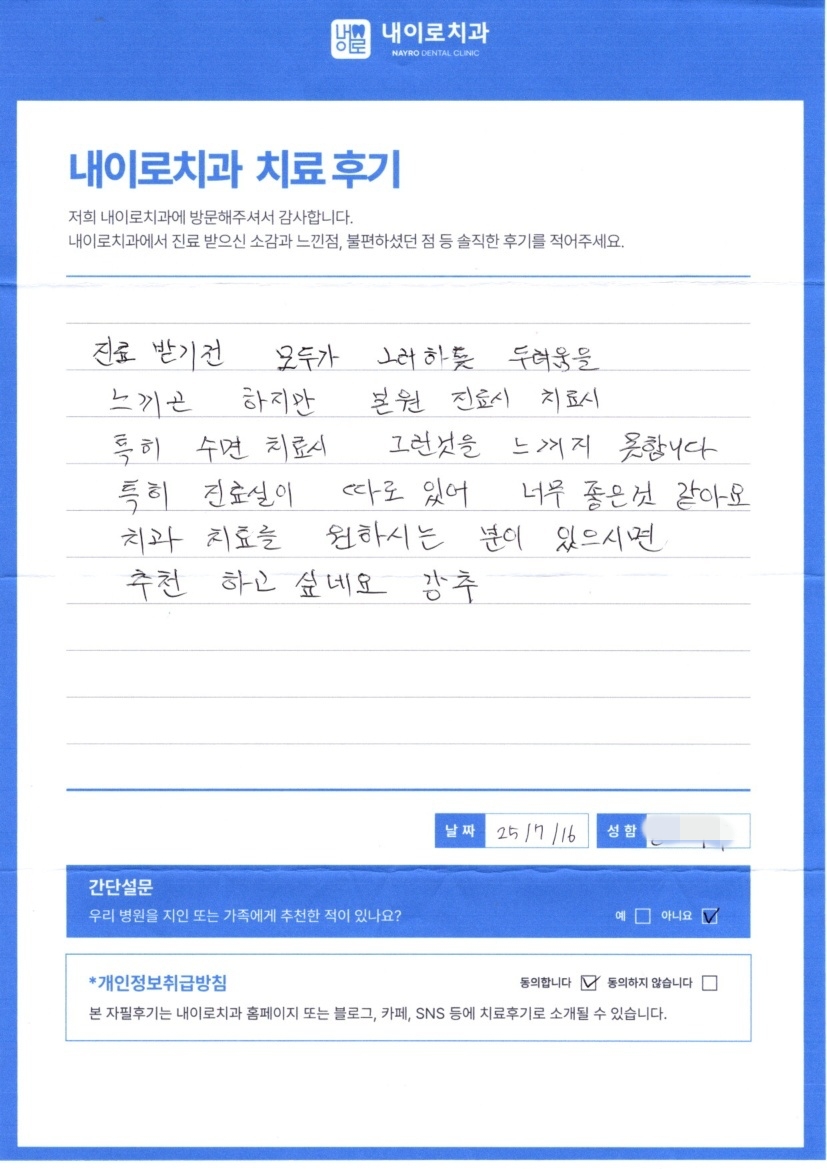 내이로
내이로치과
NAYRO DENTAL CLINIC
내이로치과 치료 후기
저희 내이로치과에 방문해주셔서 감사합니다.
내이로치과에서 진료 받으신 소감과 느낀점, 불편하셨던 점 등 솔직한 후기를 적어주세요.
진료 받기전 모두가 그러하듯 두려움을
느끼곤 하지만 본원 진료시 치료시
특히 수면 치료시 그런것을 느끼지 못합니다
특히 진료실이 따로 있어 너무 좋은것 같아요
치과 치료를 원하시는 분이 있으시면
추천 하고 싶네요 강추
날 짜 25/7/16 성 함
간단설문
우리 병원을 지인 또는 가족에게 추천한 적이 있나요? 예 아니요
*개인정보취급방침 동의합니다 동의하지 않습니다
본 자필후기는 내이로치과 홈페이지 또는 블로그, 카페, SNS 등에 치료후기로 소개될 수 있습니다.